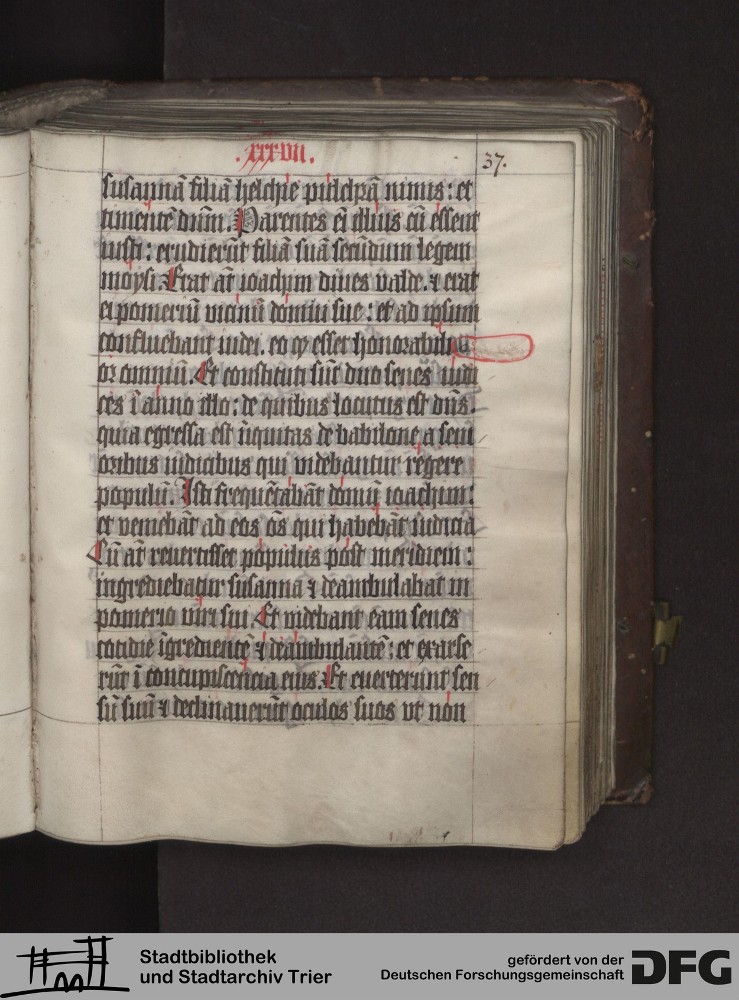 .xxxvii.
37.
susannā filiā helchie pulchrā nimis: et
timentē dnm̄. Parentes ei illius cū essent
iusti: erudierūt filiā suā secūdum legem
moysi. Erat āt ioachim diues valde. ⁊ erat
ei pomeriū vicinū domui sue: et ad ipsum
confluebant iudei. eo ꝙ esset honorabili
or omniū. Et constituti sūt duo senes iudi
ces ī anno illo: de quibus locutus est dn̄s.
quia egressa est īiquitas de babilone a seni
oribus iudicibus qui videbantur regere
populū. Isti frequētabāt domū ioachim:
et veniebāt ad eos oēs qui habebāt iudicia
Cū āt reuertisset populus post meridiem:
ingrediebatur susanna ⁊ deambulabat in
pomerio viri sui. Et videbant eam senes
cotidie īgredientē ⁊ deambulantē: et exarse
rūt ī concupiscencia eius. Et euerterunt sen
sū suū ⁊ declinauerūt oculos suos vt non
Stadtbibliothek
und Stadtarchiv Trier
gefördert von der
Deutschen Forschungsgemeinschaft
DFG